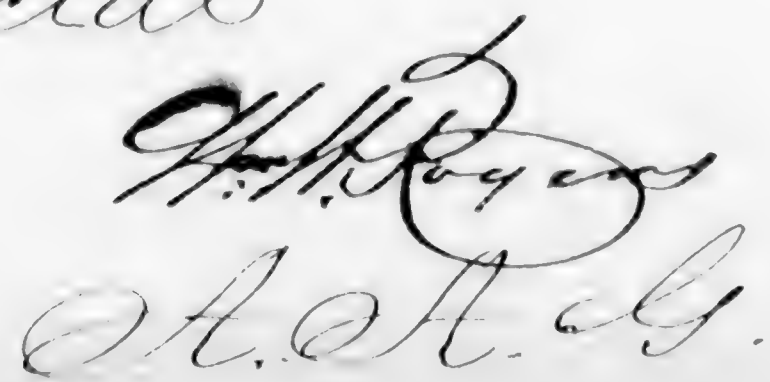 H. H. Rogers
A. A. G.